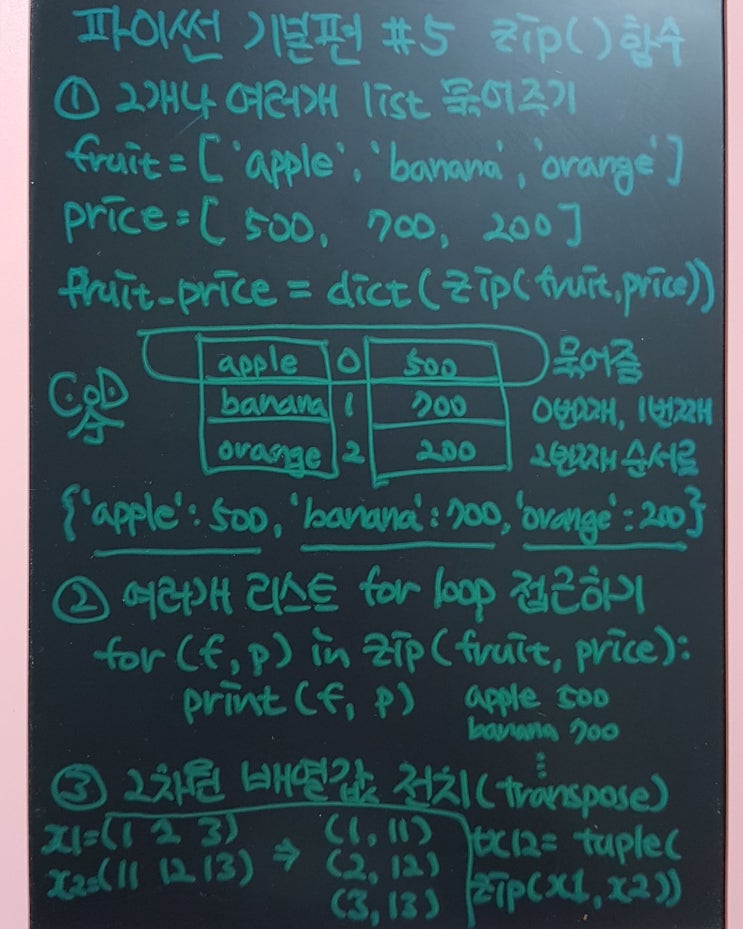 파이썬 기본편 #5 zip() 함수
① 2개나 여러개 list 묶어주기
fruit = ['apple', 'banana', 'orange']
price = [ 500, 700, 200 ]
fruit_price = dict(zip(fruit,price))
apple 0 500 묶어줌
banana 1 700 0번째, 1번째
orange 2 200 2번째 순서로
{'apple': 500, 'banana': 700, 'orange': 200}
② 여러개 리스트 for loop 접근하기
for (f, p) in zip(fruit, price):
print (f, p) apple 500
banana 700
⋮
③ 2차원 배열값 전치(transpose)
x1=(1 2 3) ⇒ (1, 11) tx12= tuple(
x2=(11 12 13) (2, 12) zip(x1, x2))
(3, 13)